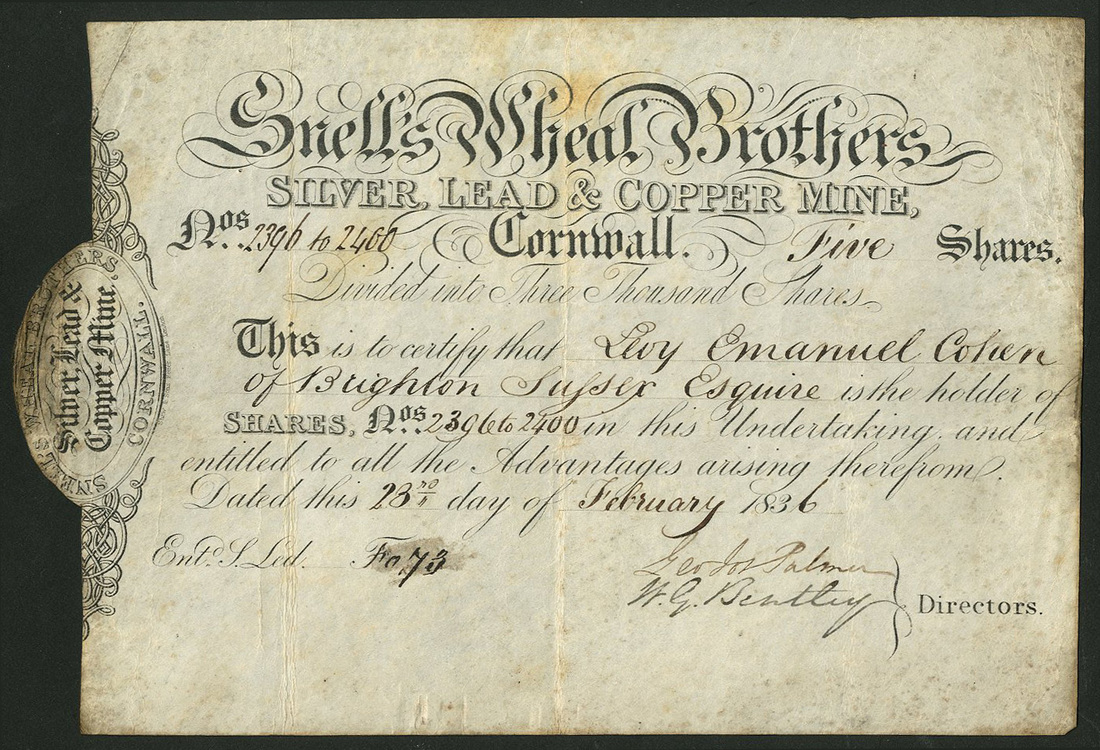 Snell's Wheal Brothers
SILVER, LEAD & COPPER MINE,
Nos. 2396 to 2400 Cornwall. Five Shares.
Divided into Three Thousand Shares
This is to certify that Levy Emanuel Cohen
of Brighton Sussex Esquire is the holder of
SHARES, Nos. 2396 to 2400 in this Undertaking and
entitled to all the Advantages arising therefrom.
Dated this 23rd day of February 1836
Entd. S. Led. Fo 73
Geo Jos Palmer
W. G. Bentley
Directors.
SNELL'S WHEAL BROTHERS
Silver, Lead &
Copper Mine,
CORNWALL.